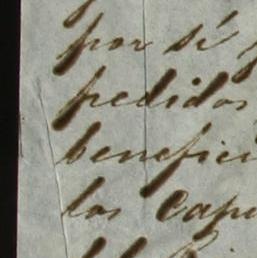 por sí
pedidos
benefici
los Capi